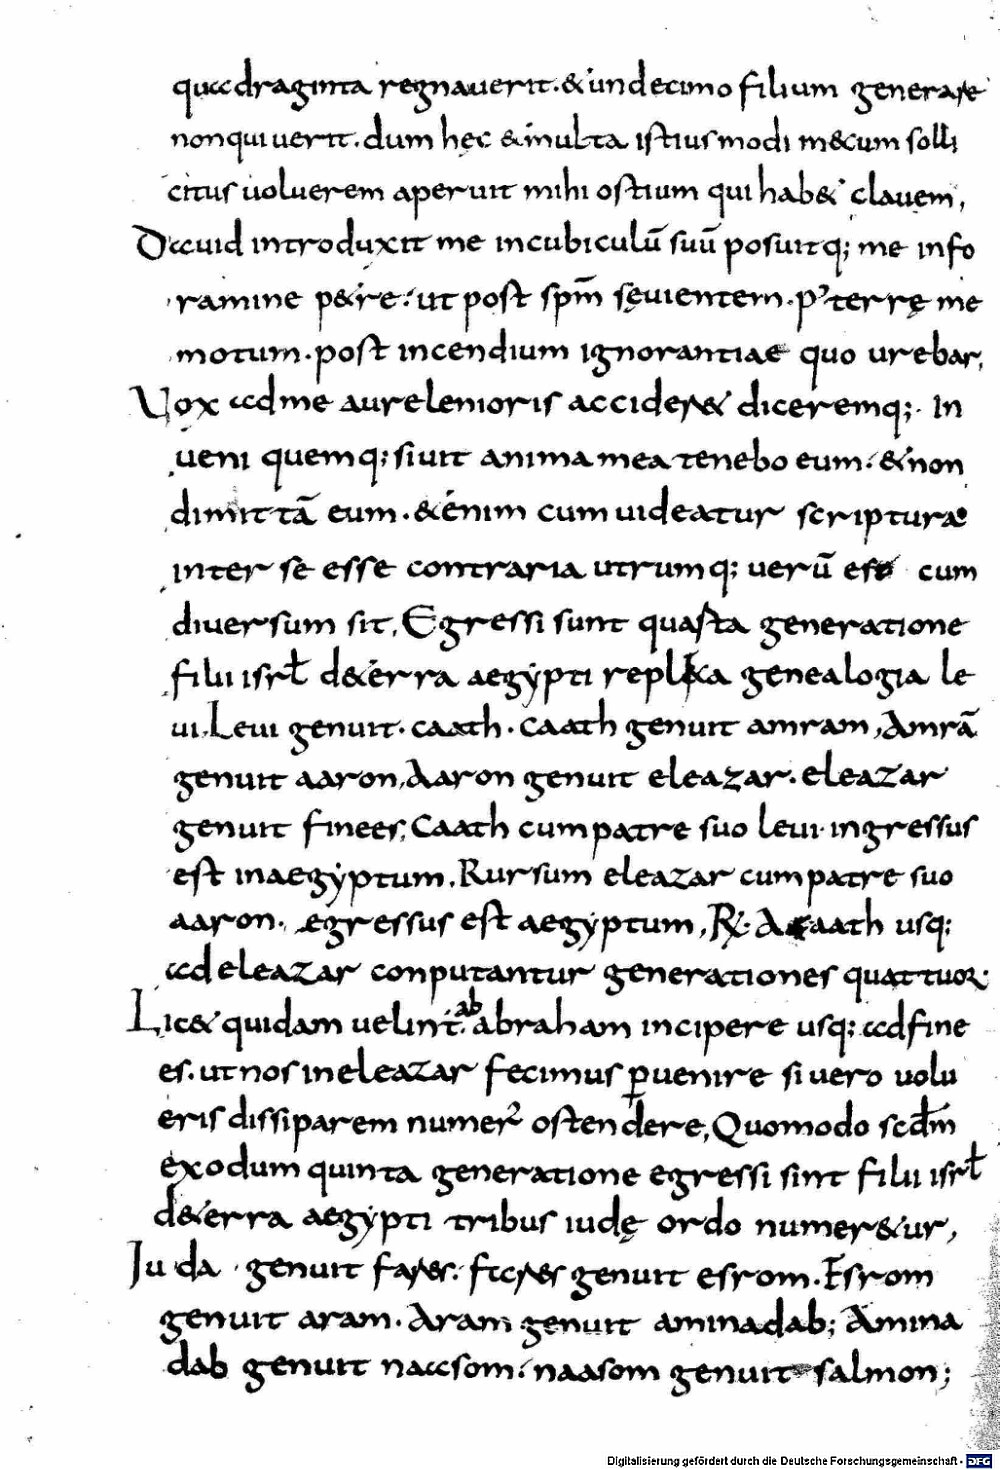 quadraginta regnauerit. & undecimo filium generare
nonquiuerit. dum hęc & multa istiusmodi m&cum solli
citus uoluerem aperuit mihi ostium qui hab& clauem,
Dauid introduxit me incubiculū suū posuitq; me info
ramine p&re. ut post spm̄ sęuientem. p' terrę me
motum. post incendium ignorantiae quo urebar,
Vox adme aurelenioris accider& diceremq;. In
ueni quemq;siuit anima mea tenebo eum. & non
dimittā eum. & enim cum uideatur scripturae
inter se esse contraria utrumq; uerū est cum
diuersum sit, Egressi sunt quarta generatione
filii isrł d& erra aegypti replica genealogia le
ui, Leui genuit. caath. Caath genuit amram, Amrā
genuit aaron, Aaron genuit eleazar. eleazar
genuit finees; Caath cum patre suo leui ingressus
est inaegyptum, Rursum eleazar cum patre suo
aaron. egressus est aegyptum, R. A caath usq;
ad eleazar conputantur generationes quattuor.
Lic& quidam uelint ab abraham incipere usq; adfine
es. ut nos ineleazar fecimus ꝑuenire si uero uolu
eris dissiparem numer2 ostendere, Quomodo scdm̄
exodum quinta generatione egressi sint filii isrł
d& erra aegypti tribus iudę ordo numer& ur,
Iuda genuit fares. fares genuit esrom. Esrom
genuit aram. Aram genuit aminadab; Amina
dab genuit naasom. naasom genuit salmon;
Digitalisierung gefördert durch die Deutsche Forschungsgemeinschaft - DFG